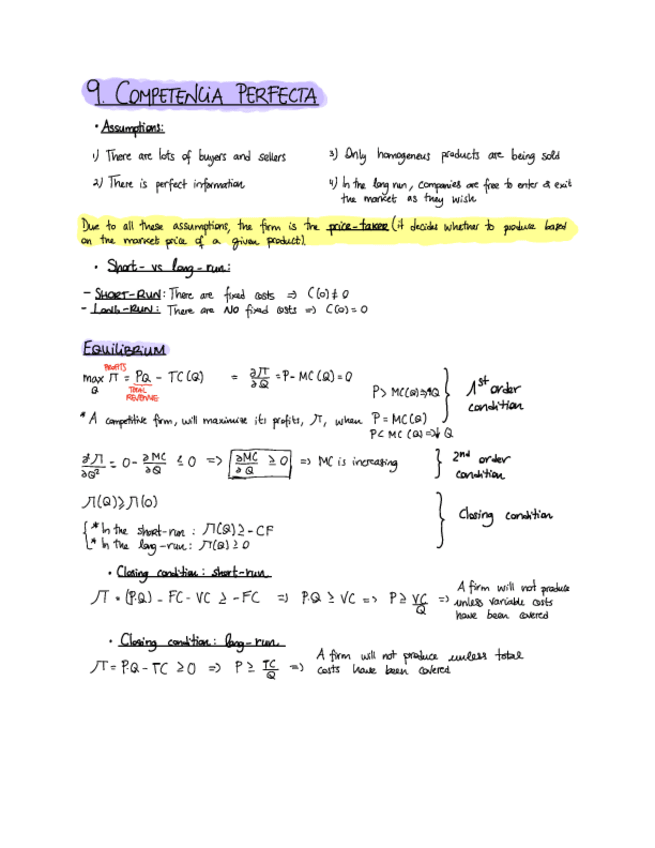 9. COMPETENCIA PERFECTA
• Assumptions:
1) There are lots of buyers and sellers
2) There is perfect information
3) Only homogeneus products are being sold
4) In the long run, companies are free to enter & exit
the market as they wish
Due to all these assumptions, the firm is the price-taker (it decides whether to produce based
on the market price of a given product).
• Short- vs long-run:
- SHORT-RUN: There are fixed costs => C(0) ≠ 0
- LONG-RUN: There are NO fixed costs => C(0) = 0
EQUILIBRIUM
PROFITS
max π = PQ - TC(Q) = ∂π/∂Q = P - MC(Q) = 0
Q
TOTAL
REVENUE
P > MC(Q) => ↑Q
* A competitive firm, will maximise its profits, π, when P = MC(Q)
P < MC(Q) => ↓Q
1st order
condition
∂²π/∂Q² = 0 - ∂MC/∂Q ≤ 0 => ∂MC/∂Q ≥ 0 => MC is increasing
2nd order
condition
π(Q) ≥ π(0)
* In the short-run: π(Q) ≥ -CF
* In the long-run: π(Q) ≥ 0
Closing condition
• Closing condition: short-run
π = (P.Q) - FC - VC ≥ -FC => P.Q ≥ VC => P ≥ VC/Q =>
A firm will not produce
unless variable costs
have been covered
• Closing condition: long-run
π = P.Q - TC ≥ 0 => P ≥ TC/Q =>
A firm will not produce unless total
costs have been covered